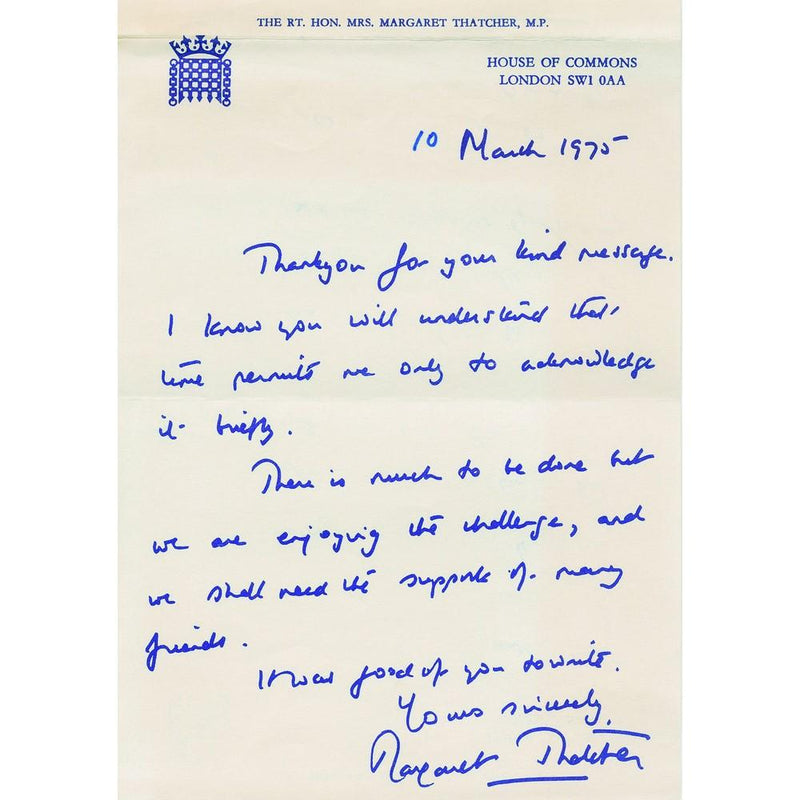 THE RT. HON. MRS. MARGARET THATCHER, M.P.
HOUSE OF COMMONS
LONDON SW1 0AA
10 March 1975
Thankyou for your kind message.
I know you will understand that
time permits me only to acknowledge
it briefly.
There is much to be done but
we are enjoying the challenge, and
we shall need the support of many
friends.
It was good of you to write.
Yours sincerely,
Margaret Thatcher